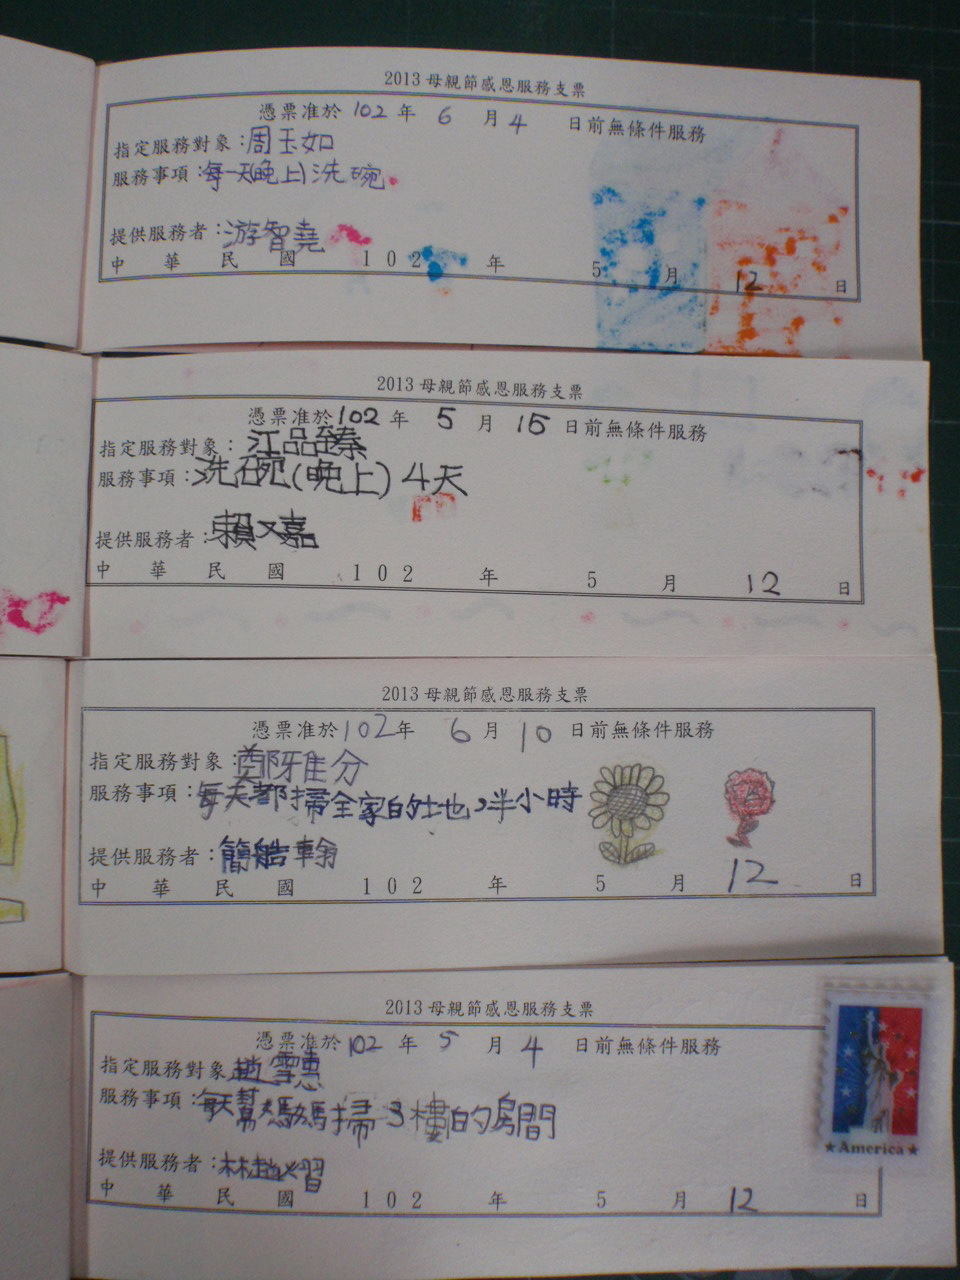 2013母親節感恩服務支票
憑票准於102年 6 月 4 日前無條件服務
指定服務對象：周玉如
服務事項：每一天(晚上)洗碗
提供服務者：游智堯
中 華 民 國 102 年 5 月 12 日
2013母親節感恩服務支票
憑票准於102年 5 月 15 日前無條件服務
指定服務對象：江品臻
服務事項：洗碗(晚上)4天
提供服務者：賴又嘉
中 華 民 國 102 年 5 月 12 日
2013母親節感恩服務支票
憑票准於102年 6 月 10 日前無條件服務
指定服務對象：鄭雅分
服務事項：每天都掃全家的土也,半小時
提供服務者：簡皓翰
中 華 民 國 102 年 5 月 12 日
2013母親節感恩服務支票
憑票准於102年 5 月 4 日前無條件服務
指定服務對象 趙雪惠
服務事項：每天幫媽媽掃3樓的房間
提供服務者：林趙
中 華 民 國 102 年 5 月 12 日
★America★